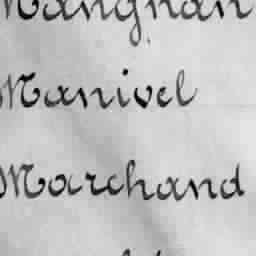 Mangnan
Manivel
Marchand